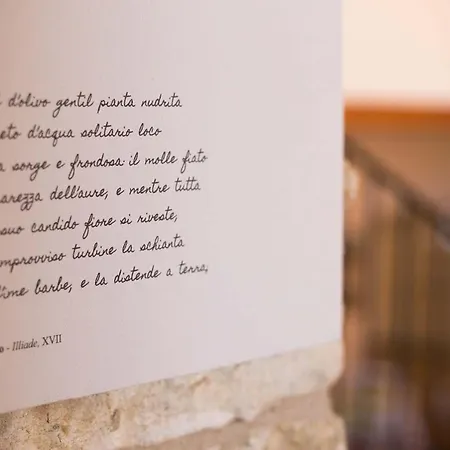 d'olivo gentil pianta nudrita
eto d'acqua solitario loco
a sorge e frondosa: il molle fiato
arezza dell'aure, e mentre tutta
suo candido fiore si riveste,
mprovviso turbine la schianta
l'ime barbe, e la distende a terra;
o - Illiade, XVII